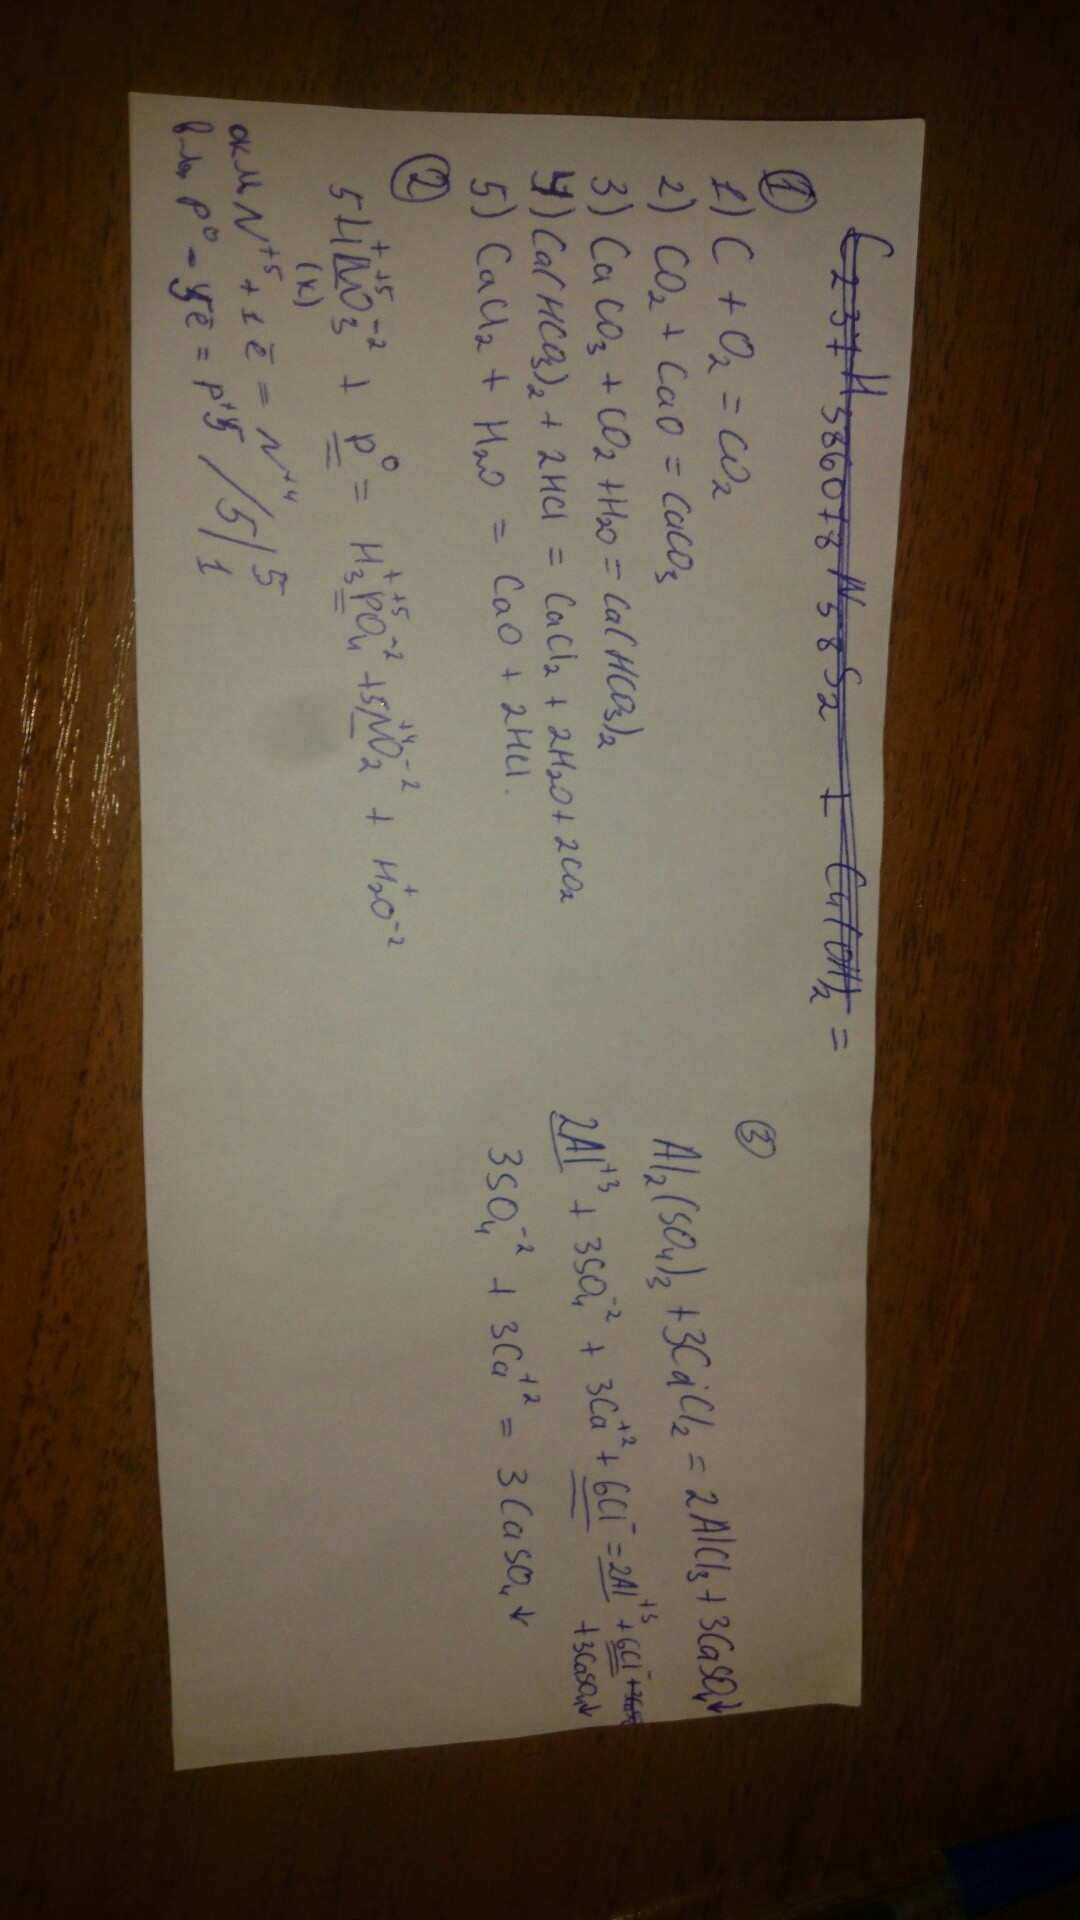 C237H386O78N58S2 + Cu(OH)2 =
①
1) C + O2 = CO2
2) CO2 + CaO = CaCO3
3) CaCO3 + CO2 + H2O = Ca(HCO3)2
4) Ca(HCO3)2 + 2HCl = CaCl2 + 2H2O + 2CO2
5) CaCl2 + H2O = CaO + 2HCl.
②
5H⁺N⁺⁵O3⁻² + P⁰ = H3⁺P⁺⁵O4⁻² + 5N⁺⁴O2⁻² + H2⁺O⁻²
(к)
N⁺⁵ + 1ē = N⁺⁴ / 5 / 5
P⁰ - 5ē = P⁺⁵ / 1
③
Al2(SO4)3 + 3CaCl2 = 2AlCl3 + 3CaSO4↓
2Al⁺³ + 3SO4⁻² + 3Ca⁺² + 6Cl⁻ = 2Al⁺³ + 6Cl⁻
+ 3CaSO4↓
3SO4⁻² + 3Ca⁺² = 3CaSO4↓